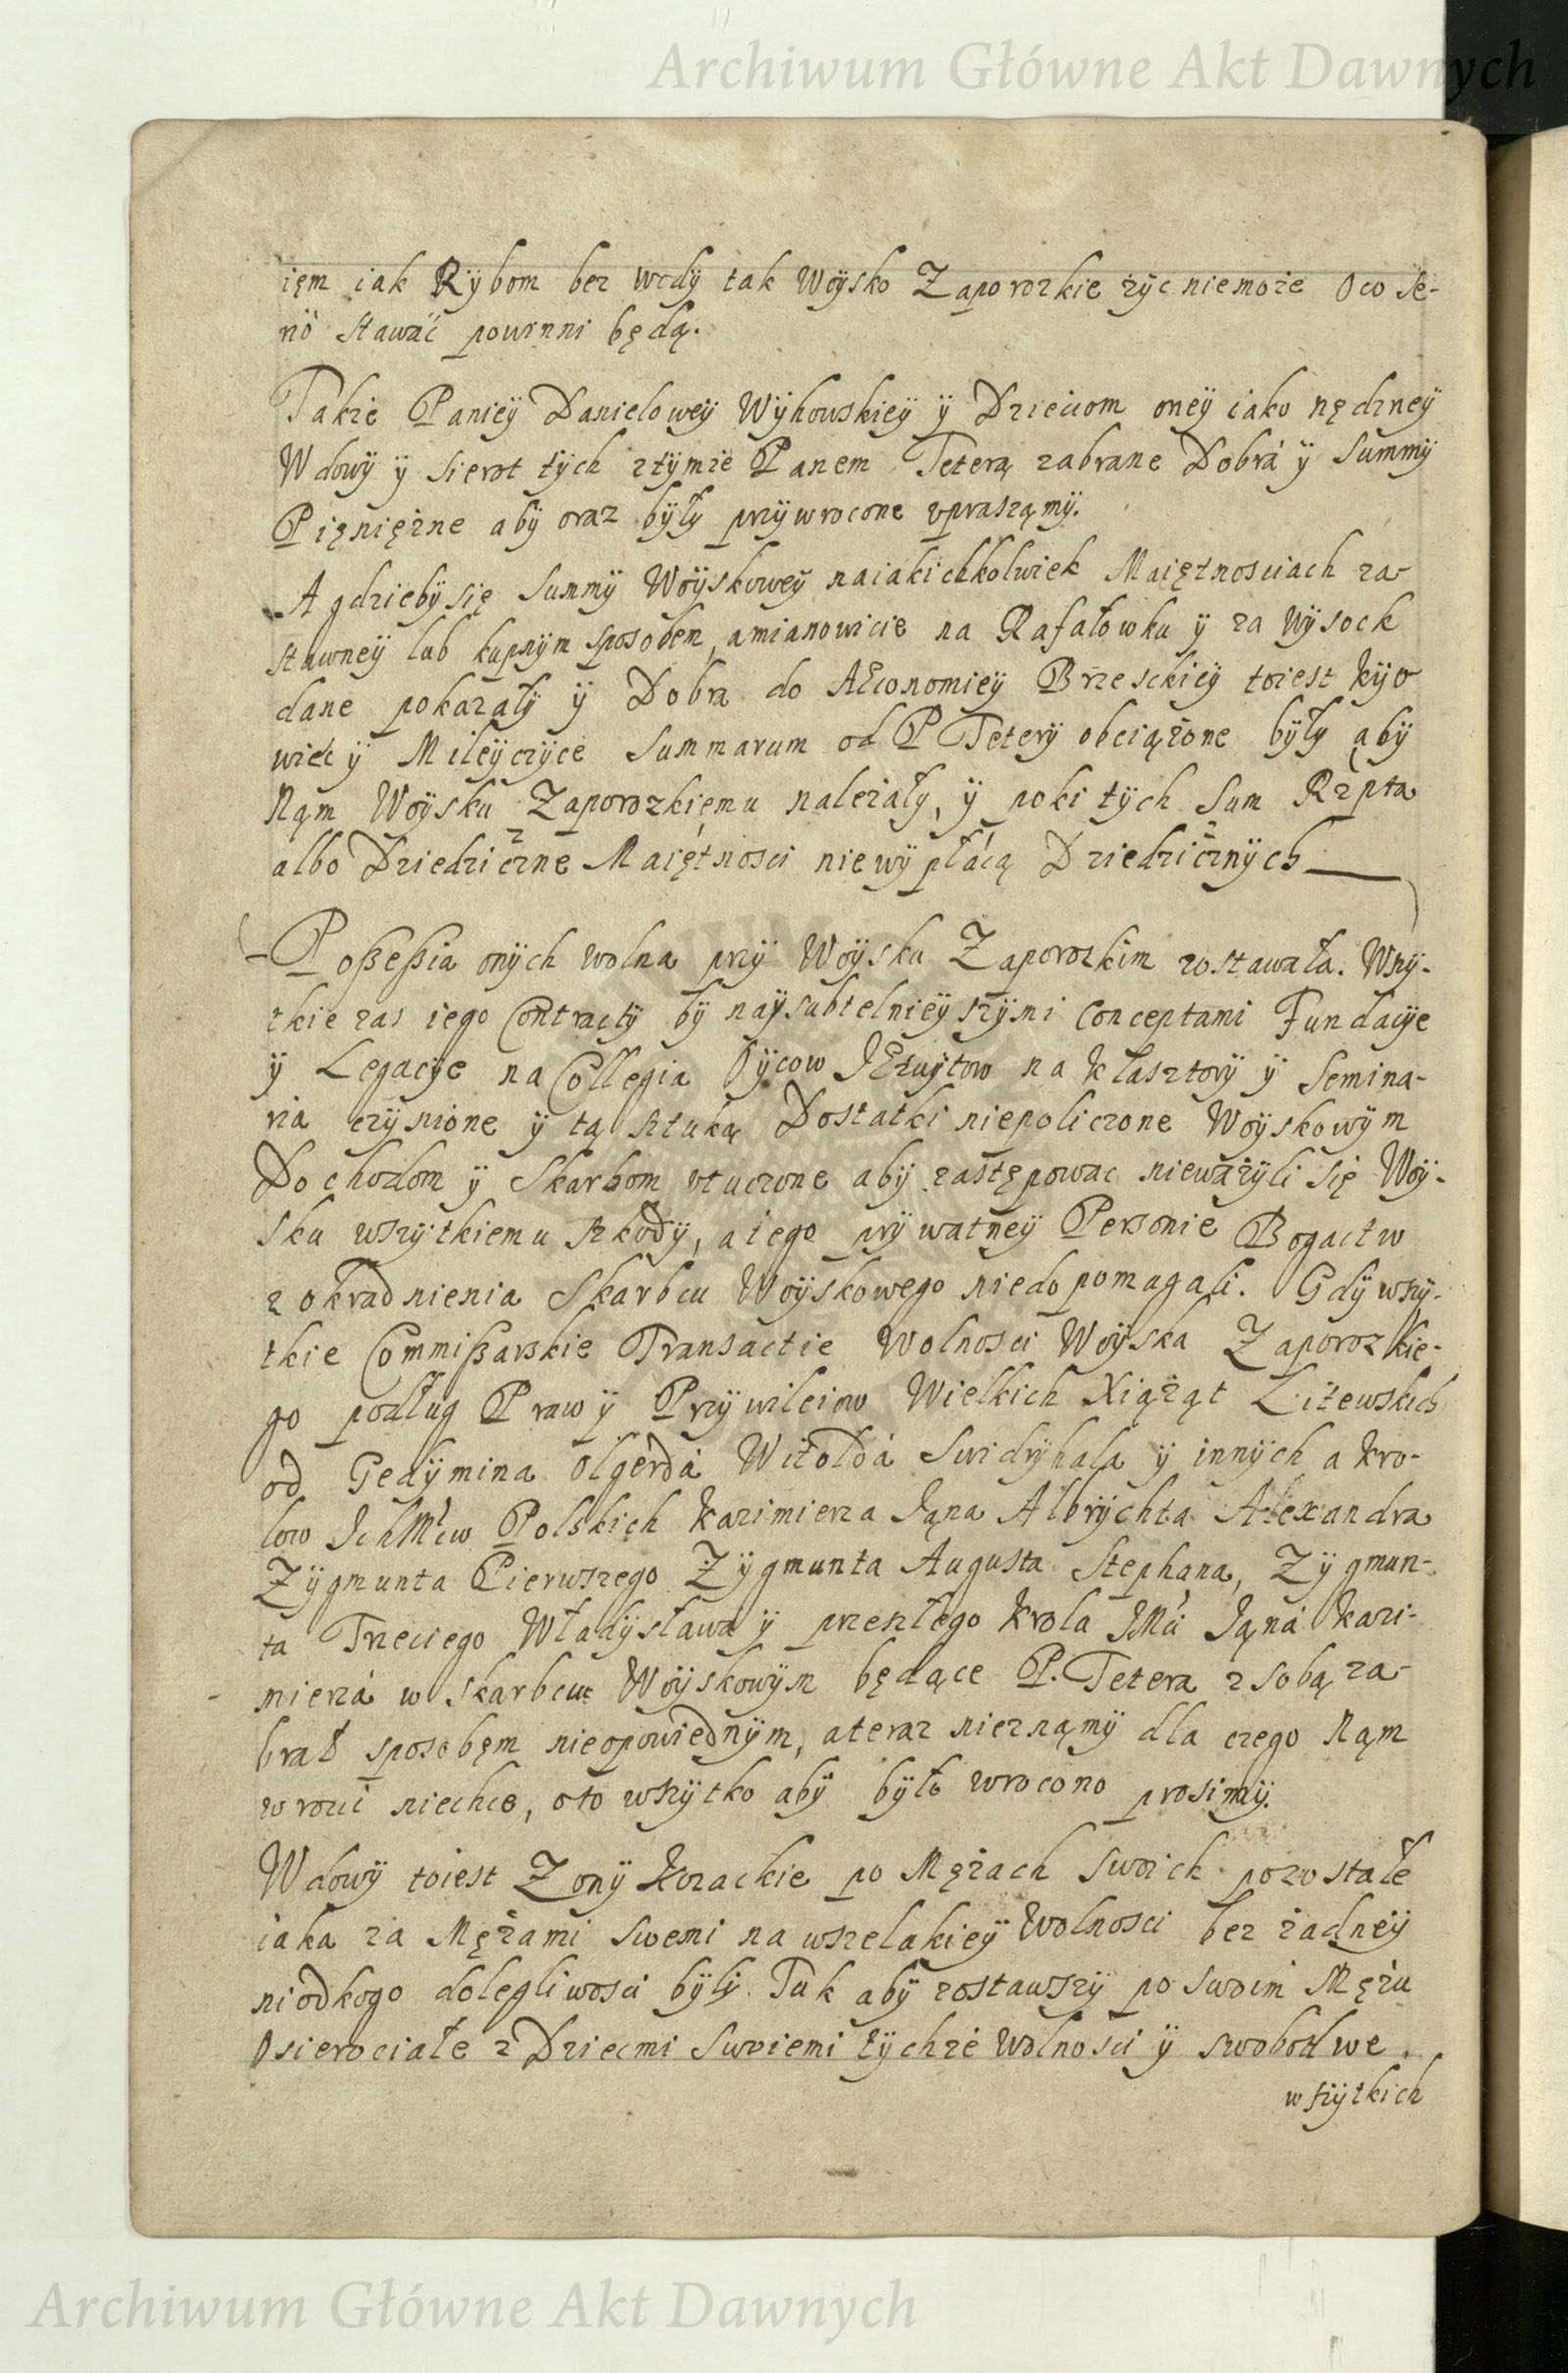 Archiwum Główne Akt Dawnych
ięm iak Rÿbom bez wodÿ tak Woÿsko Zaporozkie zÿc niemoże Oco se-
rio stawać powinni będą.
Takze Paniëÿ Danieloweÿ Wÿhowskieÿ ÿ Dzieciom oneÿ iako nędzneÿ
Wdowÿ ÿ sierot tÿch ztÿmze Panem Teterą zabrane Dobrá ÿ Summÿ
Pięniężne abÿ oraz bÿłÿ przÿwrocone upraszamÿ.
A gdziebÿ się Summÿ Woÿskoweÿ naiakichkolwiek Maiętnosciach za-
stawneÿ lub kupnÿm sposobem, amianowicie na Rafałowku ÿ za Wÿsock
dane pokazałÿ ÿ Dobra do AEconomieÿ Brzeskieÿ toiest Kÿo
wiec ÿ Mileÿczÿce Summarum od P Teterÿ obciążone bÿłÿ abÿ
Nąm Woÿsku Zaporozkięmu należałÿ, ÿ poki tÿch Sum Rzpta
albo Dziedziczne Maiętnosci niewÿpłácą Dziedzicznÿch
Poßeßia onÿch wolna przÿ Woÿsku Zaporozkim zostawała. Wszÿ-
tkie zas iego Contractÿ bÿ naÿsubtelnieÿszÿmi Conceptami Fundacÿe
ÿ Legacÿe na Collegia Oÿcow JEzuÿtow na Klasztorÿ ÿ Semina-
ria czÿnione ÿ tą sztuką Dostatki niepoliczone Woÿskowÿm
Dochodom ÿ Skarbom utuczone abÿ zastępowac nieważÿli się Woÿ-
sku wszÿtkiemu szkodÿ, a iego prÿwatneÿ Personie Bogactw
z okradnienia Skarbcu Woÿskowego niedopomagali. Gdÿ wszÿ-
tkie Commißarskie Transactie Wolnosci Woÿska Zaporozkie-
go podług Praw ÿ Przÿwileiow Wielkich Xiążąt Litewskich
od Gedÿmina Olgerdá Witoldá Swidrÿhala ÿ innÿch a Kro-
low Ichmciw Polskich Kazimierza Iąna Albrÿchta Alexandra
Zÿgmunta Pierwszego Zÿgmunta Augusta Stephana, Zÿgmun-
ta Trzeciego Władÿsława ÿ przeszłego Krola JMci Iąná Kazi-
mierzá w Skarbcu Woÿskowÿm będące P. Tetera z sobą za-
brał sposobęm nieopowiednÿm, a teraz nieznamÿ dla czego Nąm
wrocić niechce, oto wszÿtko abÿ bÿło wrocono prosimÿ.
Wdowÿ toiest Zonÿ Kozackie po Mężach swoich pozostałe
iaka za Mężami swemi na wszelakieÿ Wolnosci bez żadneÿ
niodkogo dolegliwosci bÿłÿ. Tak abÿ zostawszÿ po swoim Mężu
Osierociałe z Dziecmi Swoiemi tÿchże Wolnosci ÿ swobod we
wszÿtkich
Archiwum Główne Akt Dawnych